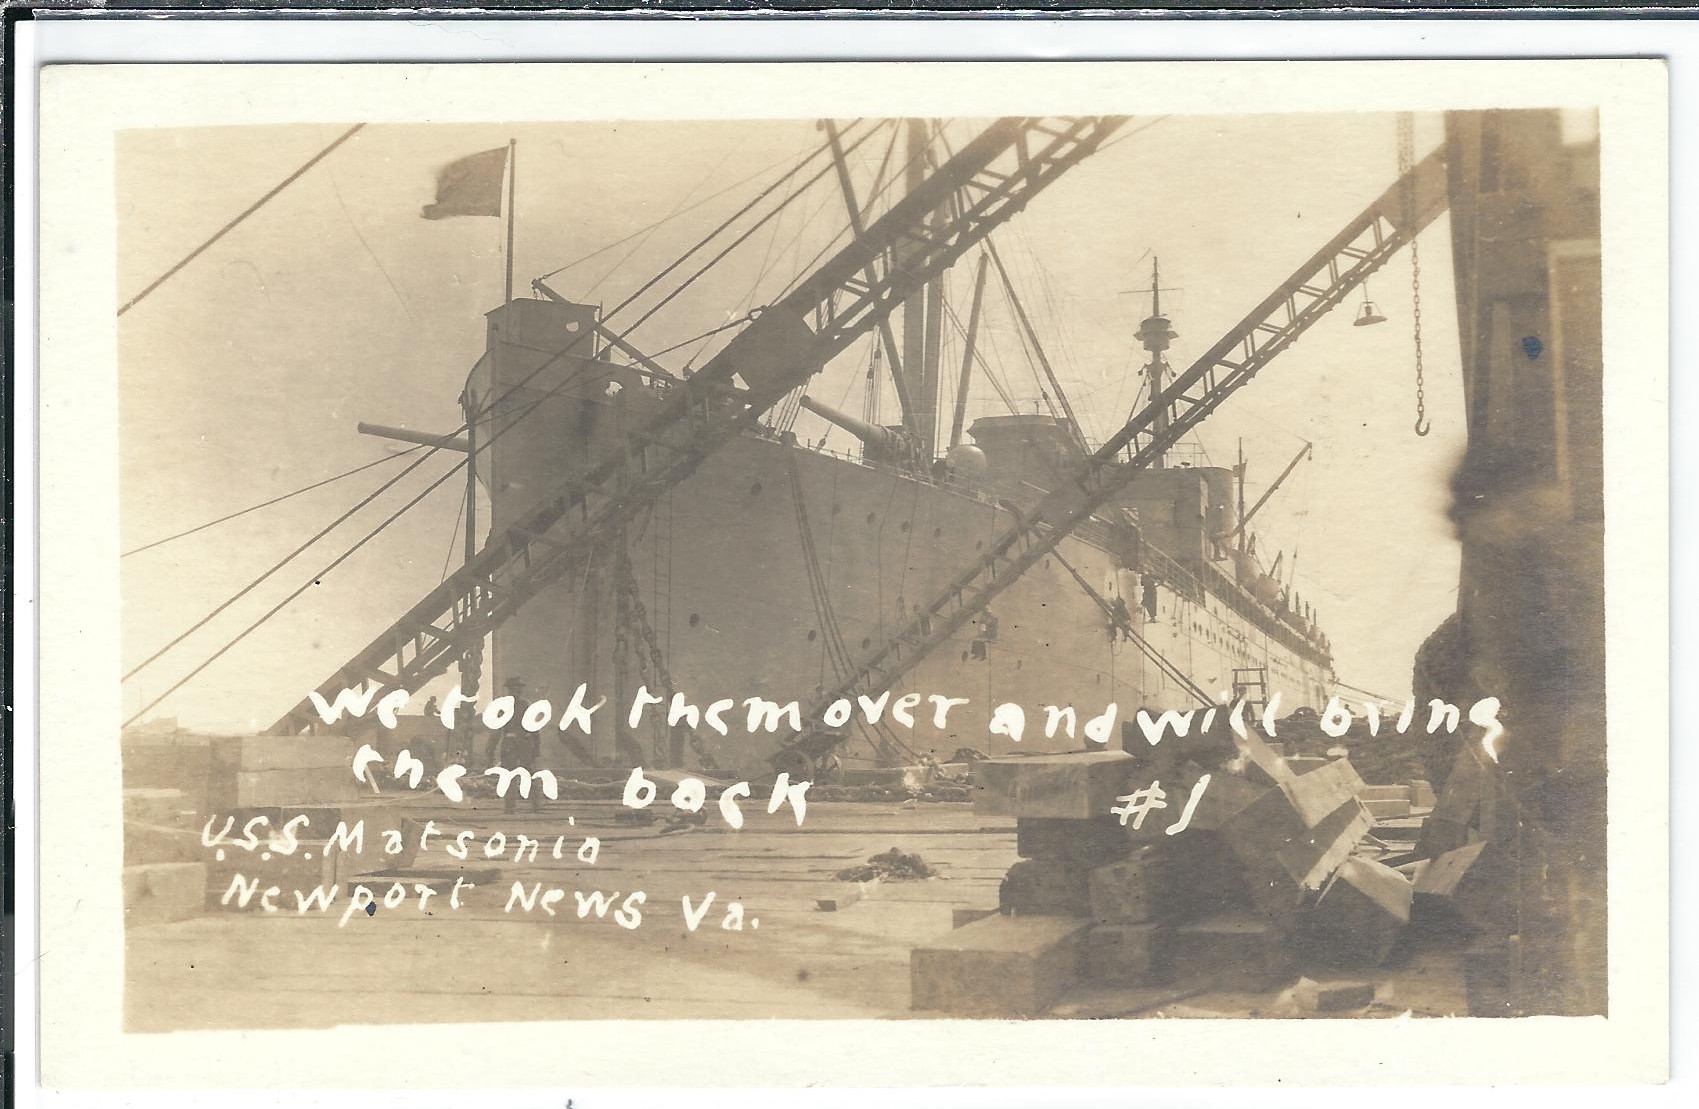 We took them over and will bring
them back #1
U.S.S. Matsonia
Newport News Va.